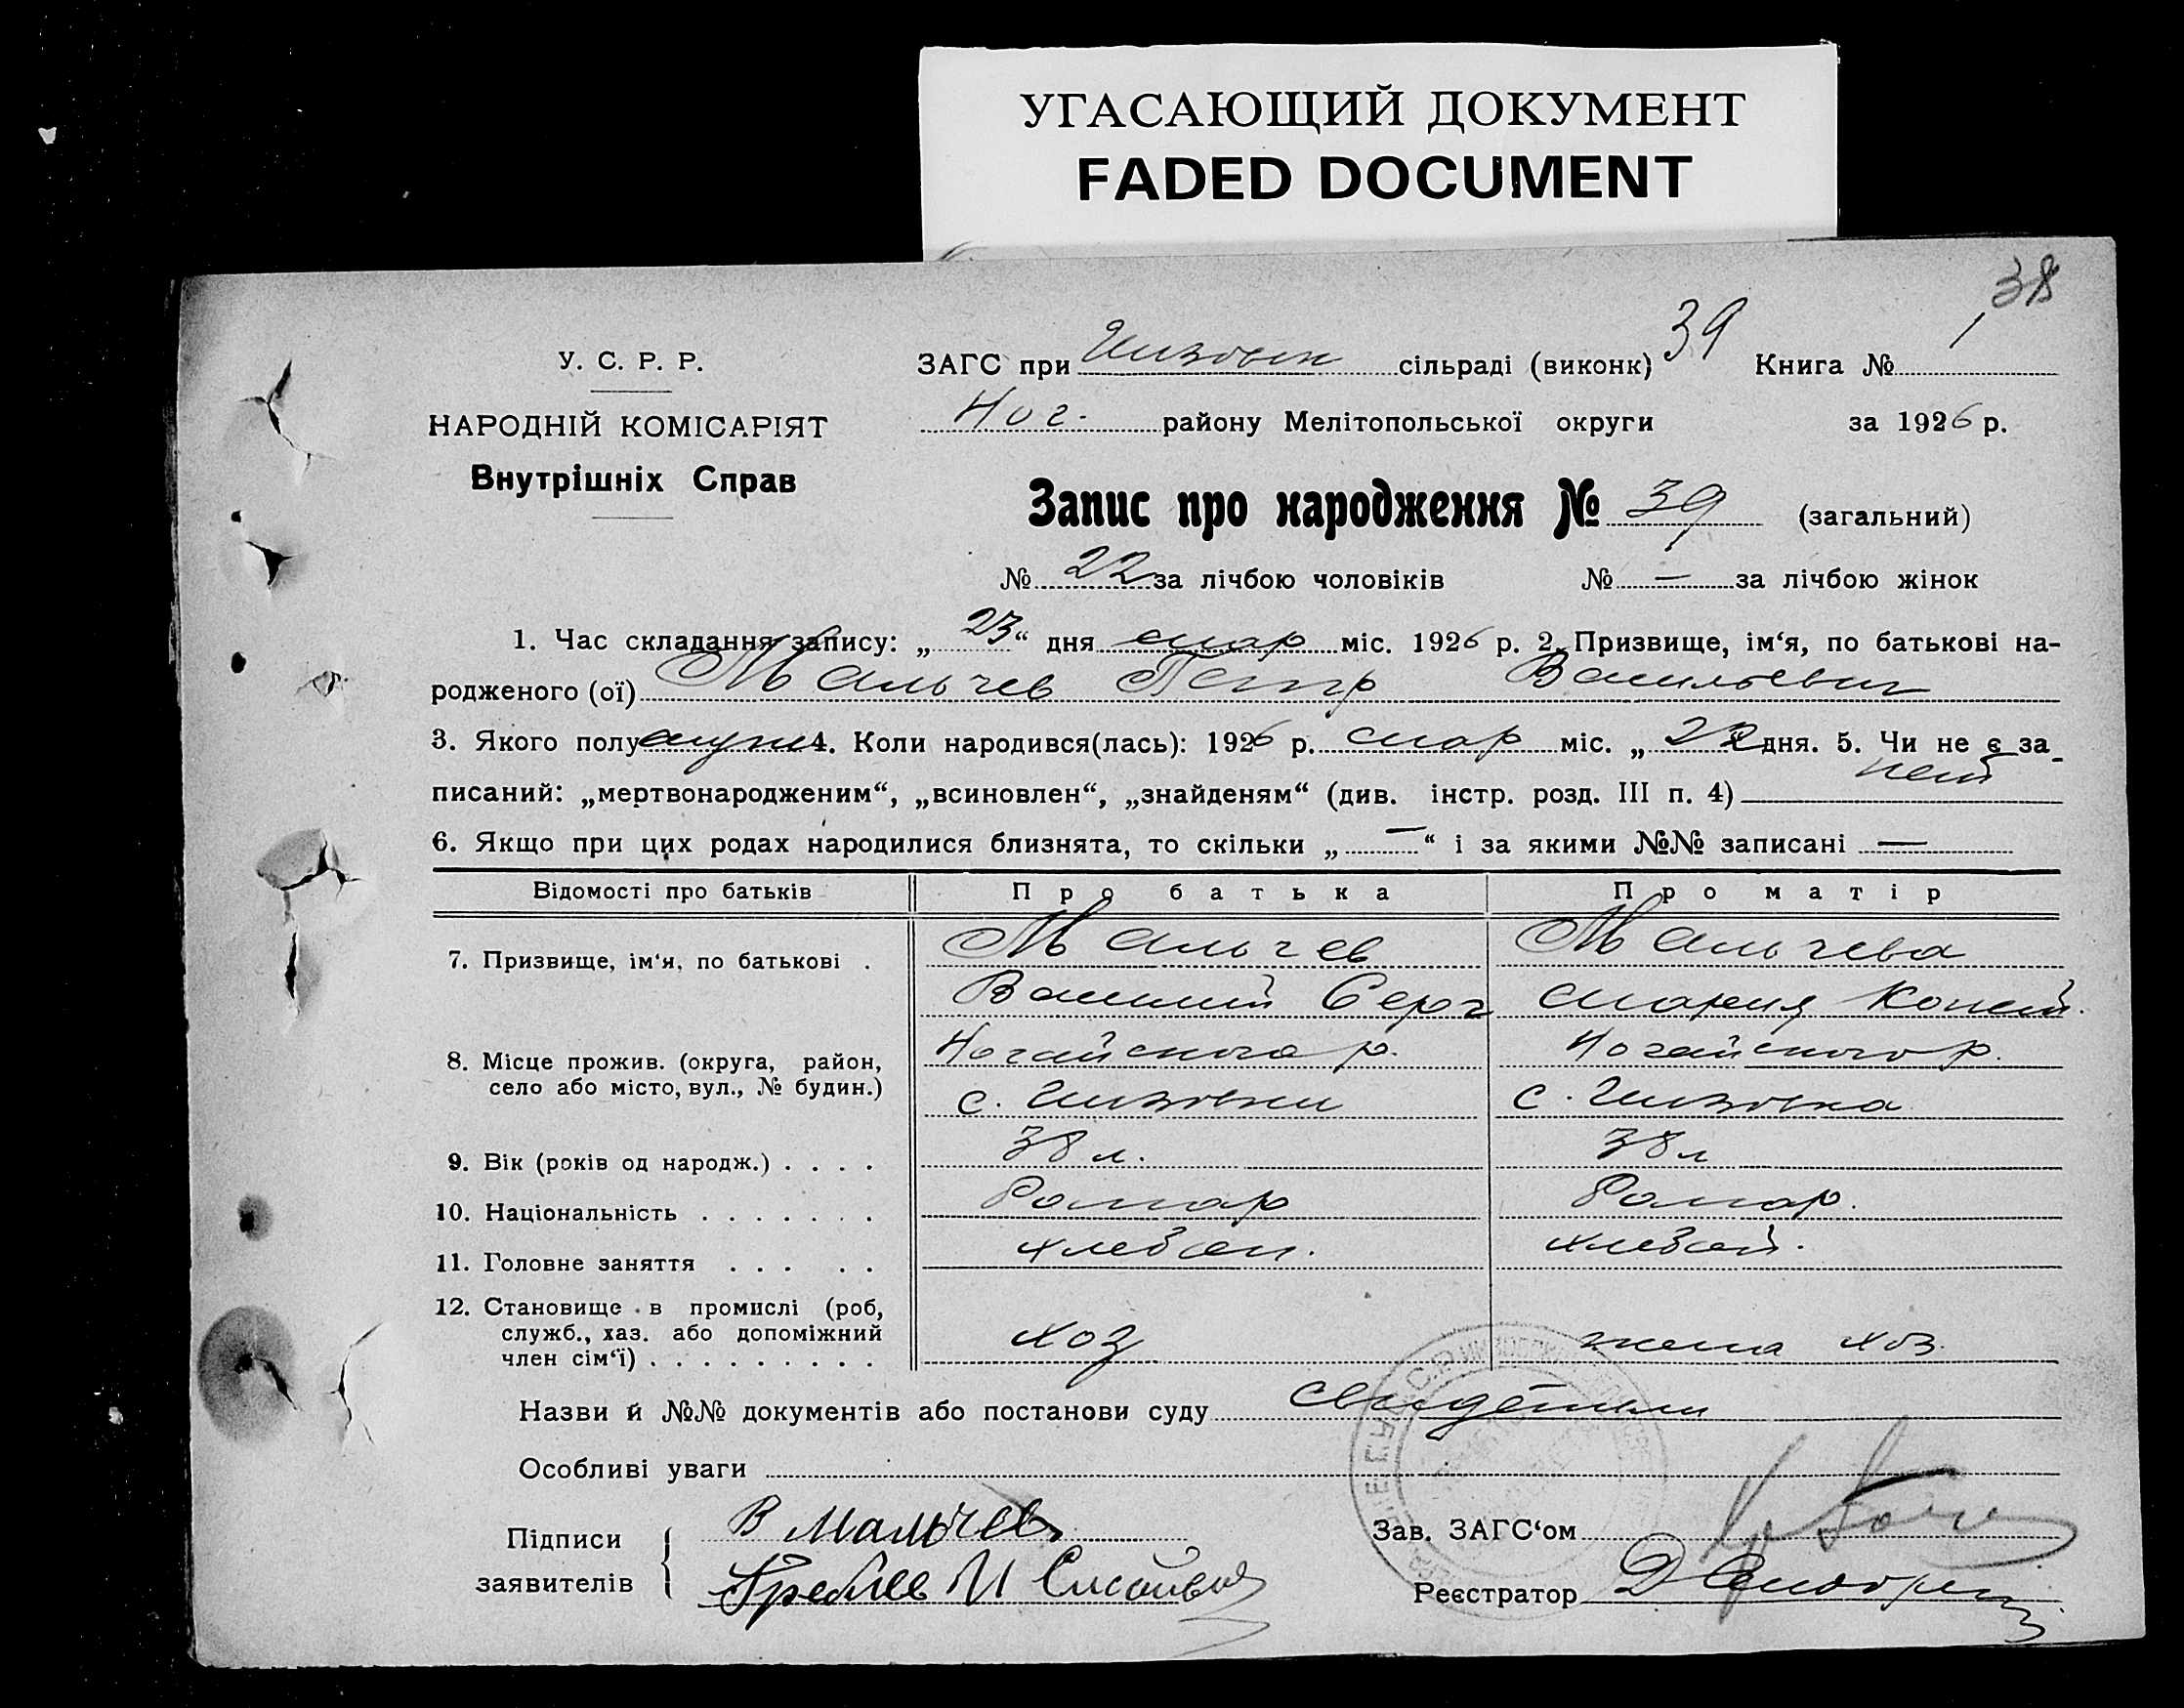 УГАСАЮЩИЙ ДОКУМЕНТ
FADED DOCUMENT
38
У. С. Р. Р.
НАРОДНІЙ КОМІСАРІЯТ
Внутрішніх Справ
ЗАГС при сільраді (виконк) 39 Книга № 1
Ног. району Мелітопольської округи за 1926 р.
Запис про народження № 39 (загальний)
№ 22 за лічбою чоловіків № — за лічбою жінок
1. Час складання запису: „ 23 “ дня мар міс. 1926 р. 2. Призвище, ім‘я, по батькові на-
родженого (ої) Мальчев Петр Васильевич
3. Якого полу муж 4. Коли народився(лась): 1926 р. мар міс. „ 22 дня. 5. Чи не є за-
писаний: „мертвонародженим“, „всиновлен“, „знайденям“ (див. інстр. розд. III п. 4) нет
6. Якщо при цих родах народилися близнята, то скільки „ — “ і за якими №№ записані —
Відомості про батьків Про батька Про матір
7. Призвище, ім‘я, по батькові . Мальчев Мальчева
Василий Серг Мария Конст.
8. Місце прожив. (округа, район, Ногайского р. Ногайского р.
село або місто, вул., № будин.) с. с.
9. Вік (років од народж.) . . . . 38 л. 38 л
10. Національність . . . . . . . Болгар Болгар.
11. Головне заняття . . . . . хлебоп. хлебоп.
12. Становище в промислі (роб,
служб., хаз. або допоміжний хоз жена хоз.
член сім‘ї) . . . . . . . . .
Назви й №№ документів або постанови суду свидетели
Особливі уваги
Підписи В Мальчев Зав. ЗАГС‘ом
заявителів И Реєстратор Д